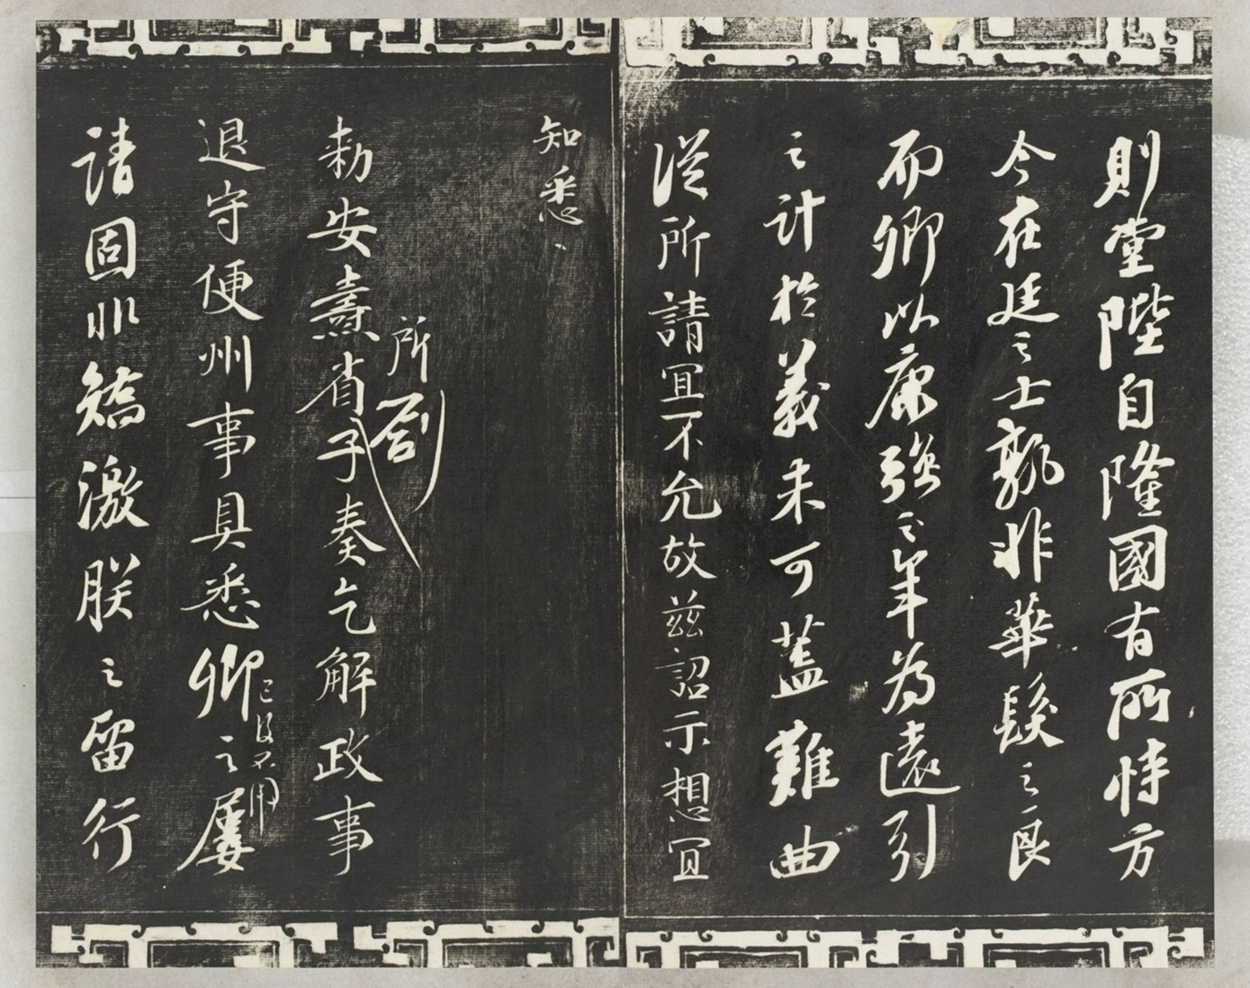 則堂陛自隆國有所恃方
今在廷之士孰非華髮之良
而卿以康強之年為遠引
之計於義未可蓋難曲
從所請宜不允故茲詔示想宜
知悉
所劄
勑安燾省子奏乞解政事
退守便州事具悉卿之屢
已後不用
請固非矯激朕之留行